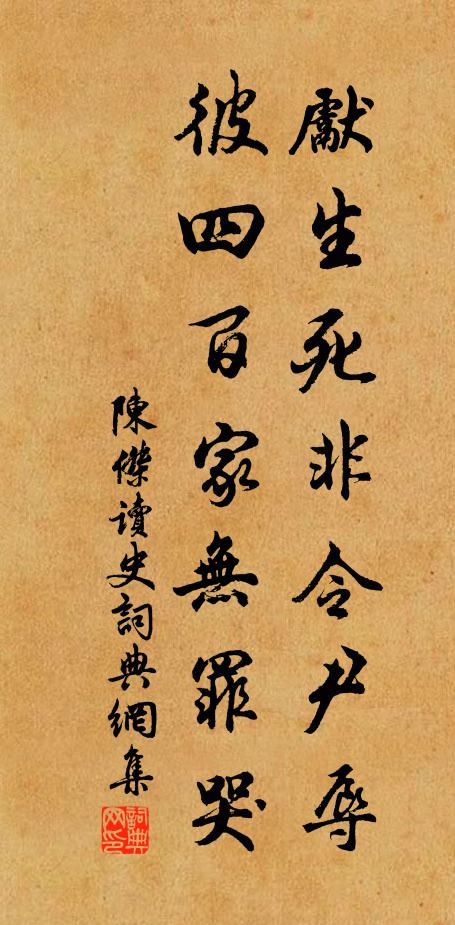 獻生死非令尹辱
彼四百家無罪哭
陳傑讀史詞典網集
詞典網印